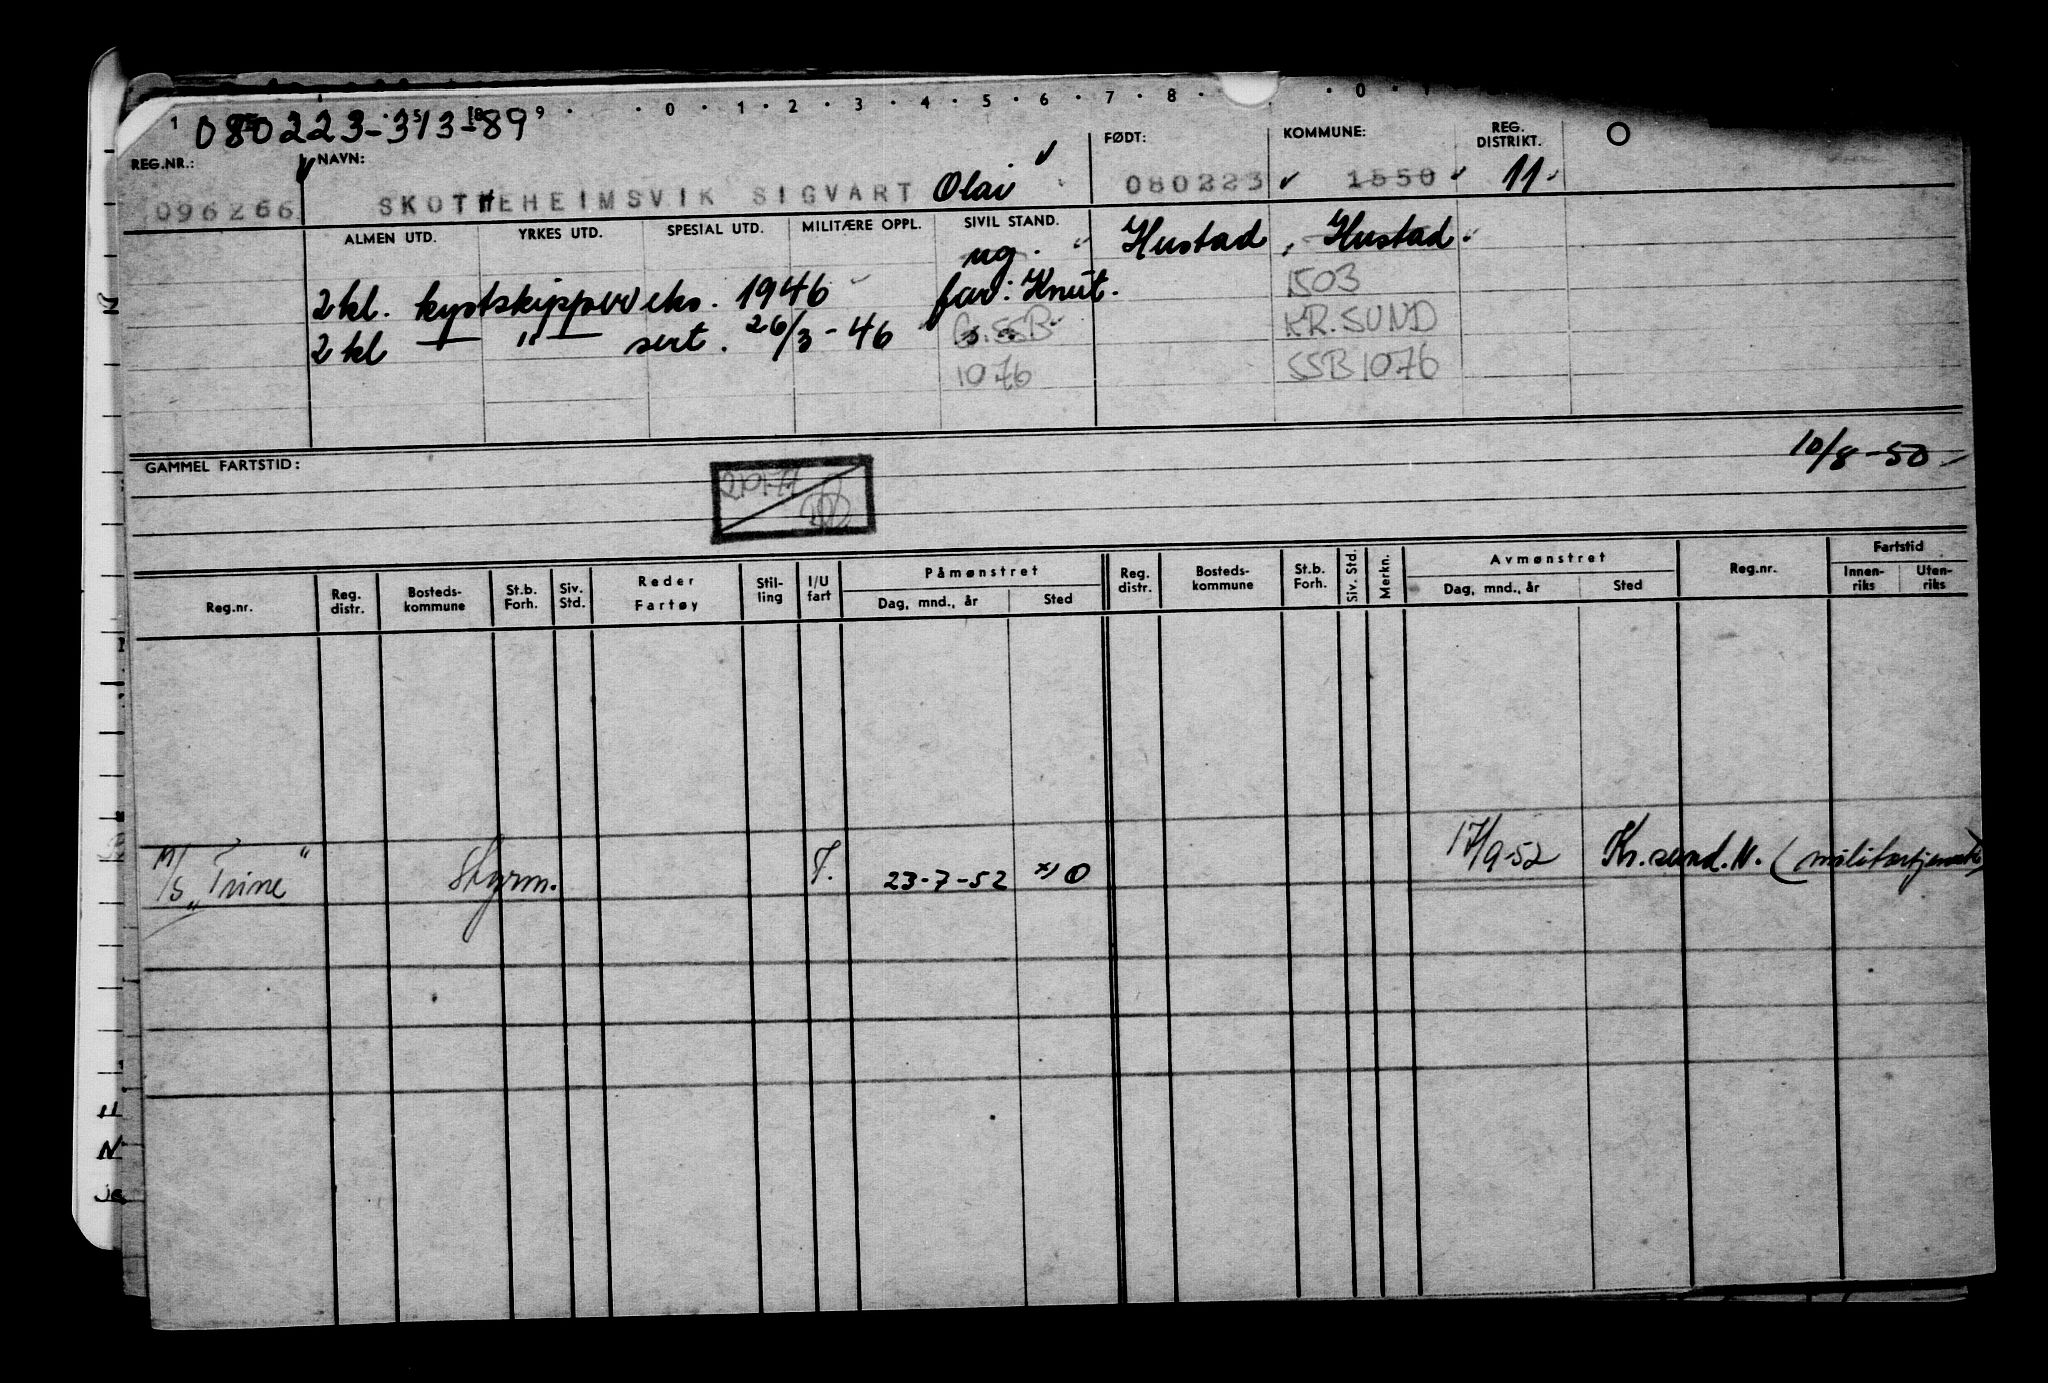 080223-313-89
0 · 1 · 2 · 3 · 4 · 5 · 6 · 7 · 8
REG.NR.: NAVN: FØDT: KOMMUNE: REG. DISTRIKT.
096266 SKOTHEHEIMSVIK SIGVART Olai 080223 1550 11
ALMEN UTD. YRKES UTD. SPESIAL UTD. MILITÆRE OPPL. SIVIL STAND.
ug. Hustad, Hustad.
2 kl. kystskippereks. 1946 far: Knut. 1503
2 kl — " — sert. 26/3-46 G. SSB KR.SUND
1076 SSB 1076
GAMMEL FARTSTID: 10/8-50
Reg.nr. Reg. distr. Bosteds-kommune St.b. Forh. Siv. Std. Reder Fartøy Stil-ling I/U fart Påmønstret Dag, mnd., år Sted Reg. distr. Bosteds-kommune St.b. Forh. Siv. Std. Merkn. Avmønstret Dag, mnd., år Sted Reg.nr. Fartstid Innen-riks Uten-riks
M/S "Trine" Styrm. 23-7-52 x) 0 17/9-52 Kr.sund.N. (militærtjeneste)